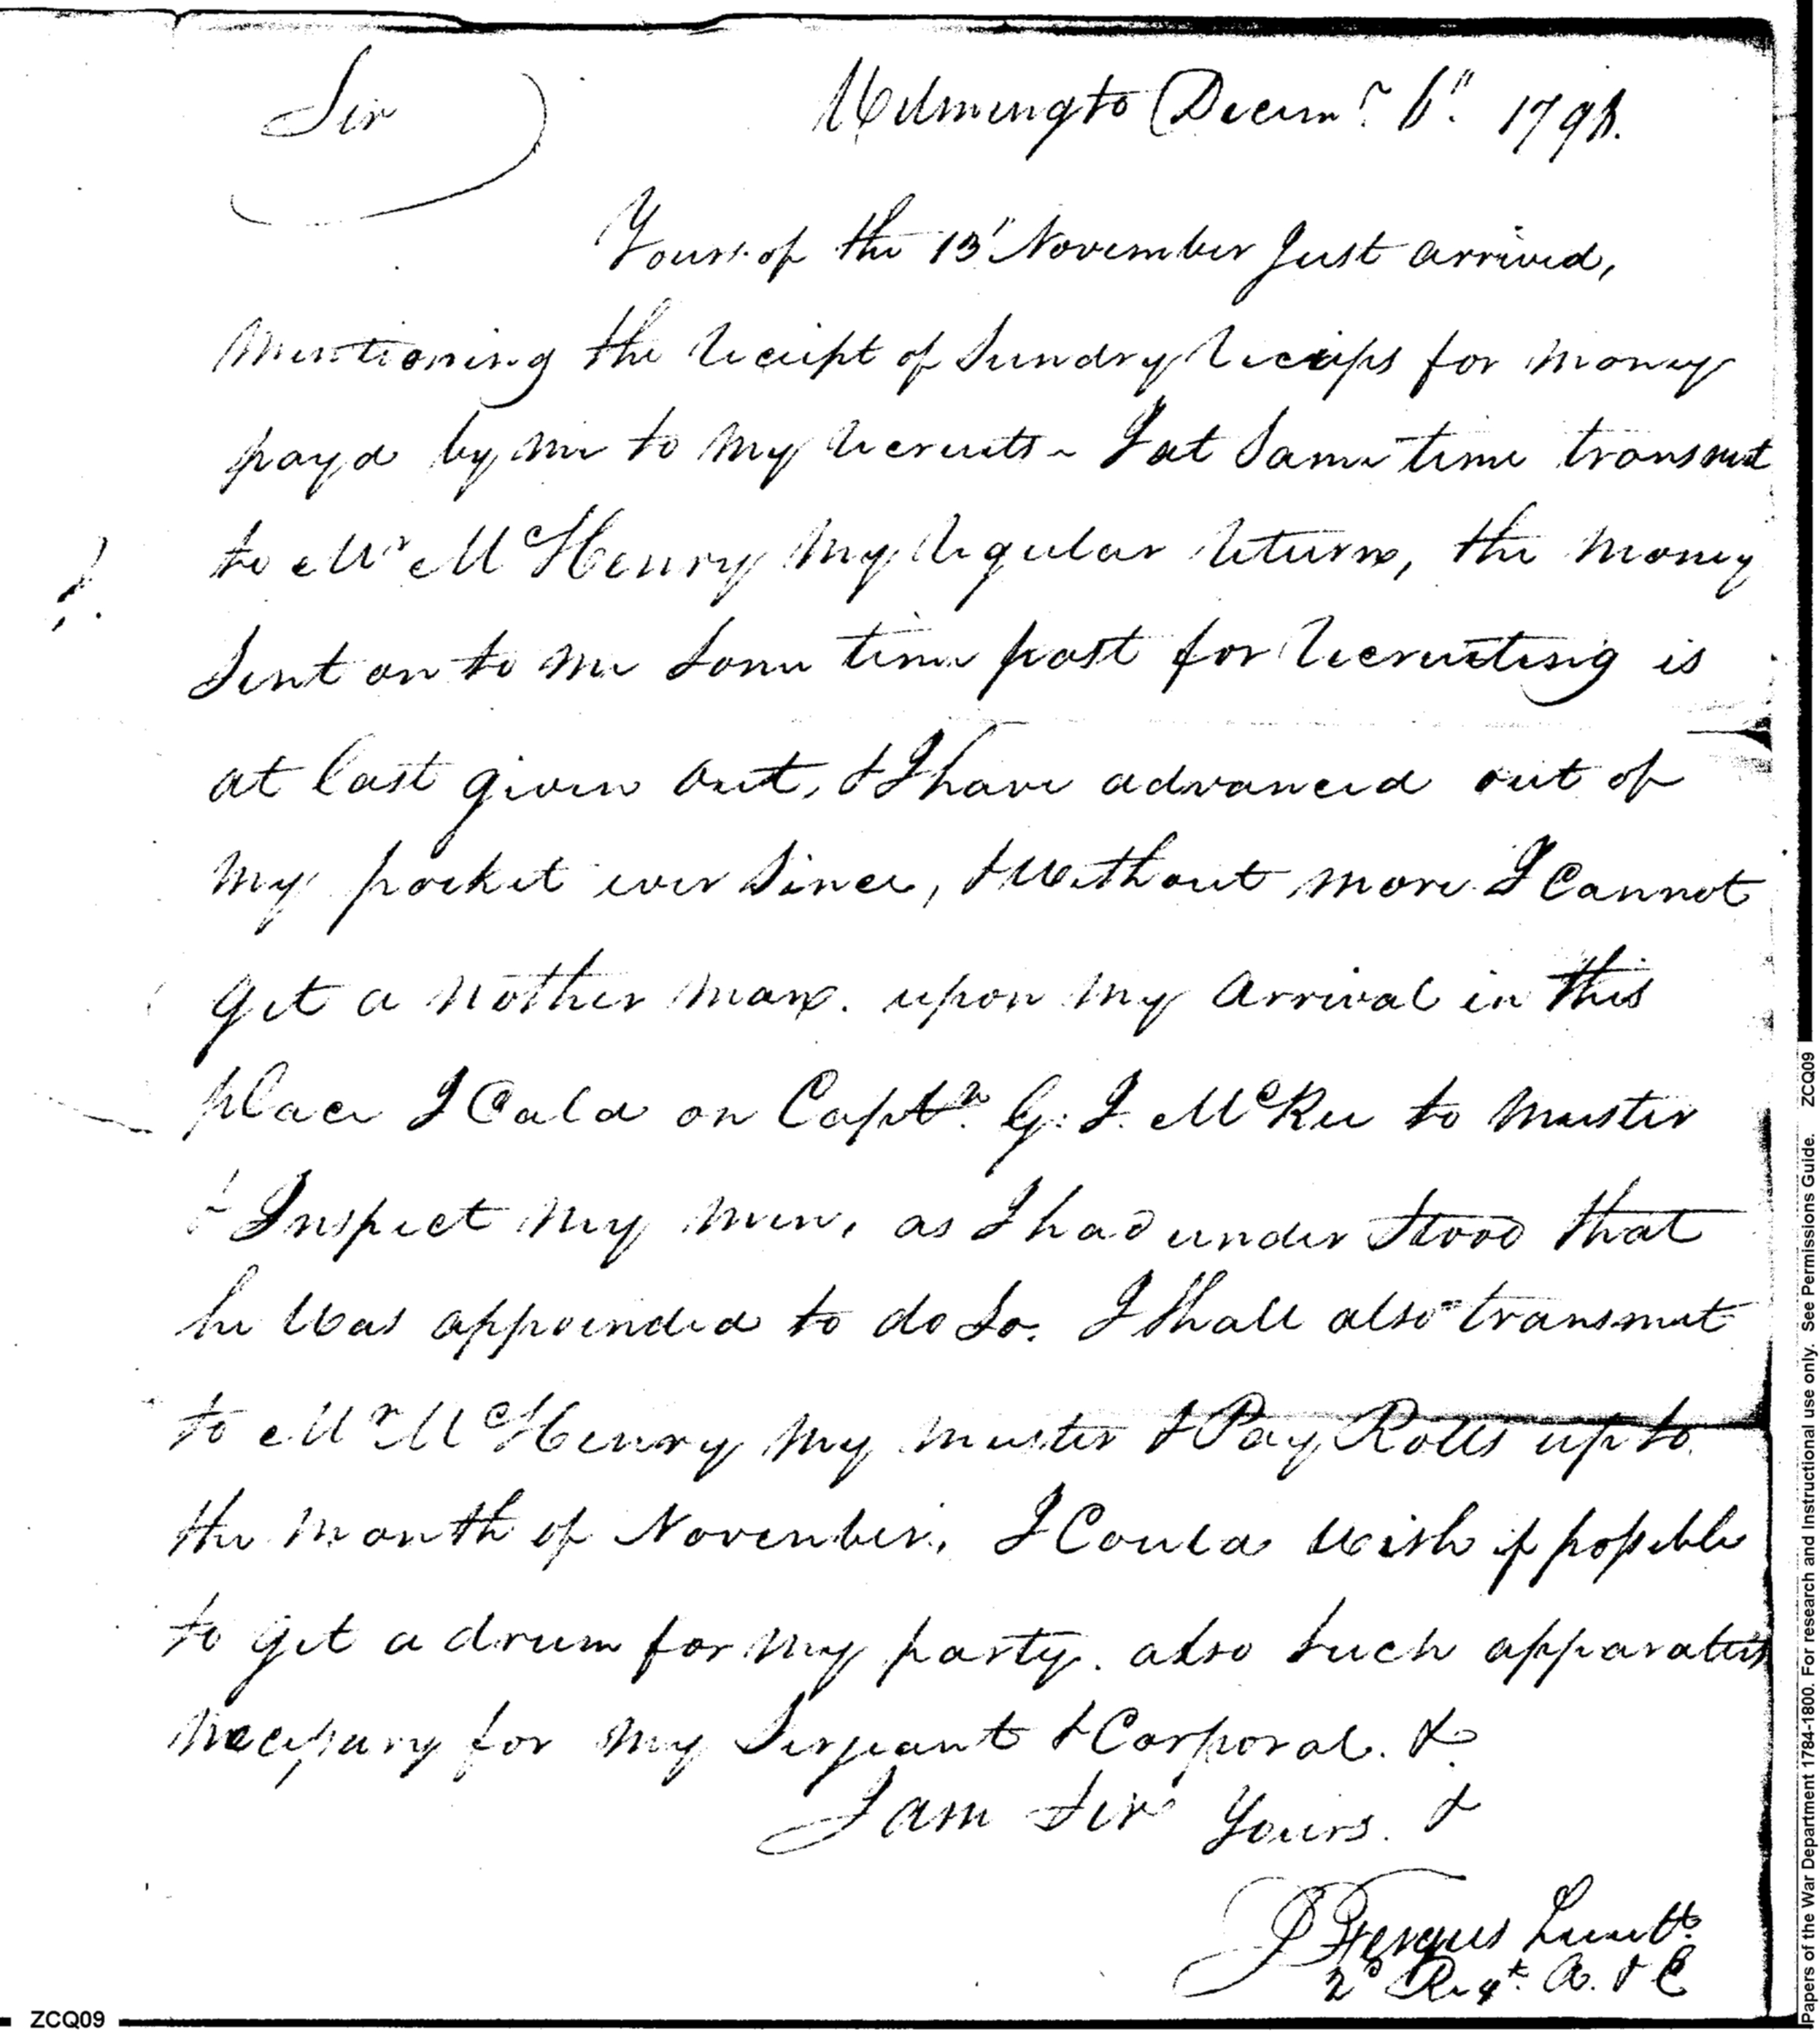 Sir
Wilmingto Decemr. 6". 1798.
Yours of the 13" November Just arrived,
mentioning the receipt of Sundry receips for money
payd by me to my recruits ~ I at Same time transmit
to Mr McHenry my regular returns, the money
Sent on to me Some time past for recruiting is
at last given out, & I have advanced out of
my pocket ever Since, & Without more I Cannot
get a nother man. upon my arrival in this
place I Cald on Captn. G: J. McRee to muster
& Inspect my men, as I had under Stood that
he Was appoinded to do So. I Shall also transmit
to Mr McHenry my muster & Pay Rolls up to
the month of November. I Could Wish if possible
to get a drum for my party. also Such apparatus
necessary for my Serjeant & Corporal. &.
I am Sir Yours. &
J Fergus Lieutt.
2d Regt. A. & E
ZCQ09
Papers of the War Department 1784-1800. For research and Instructional use only. See Permissions Guide. ZCQ09